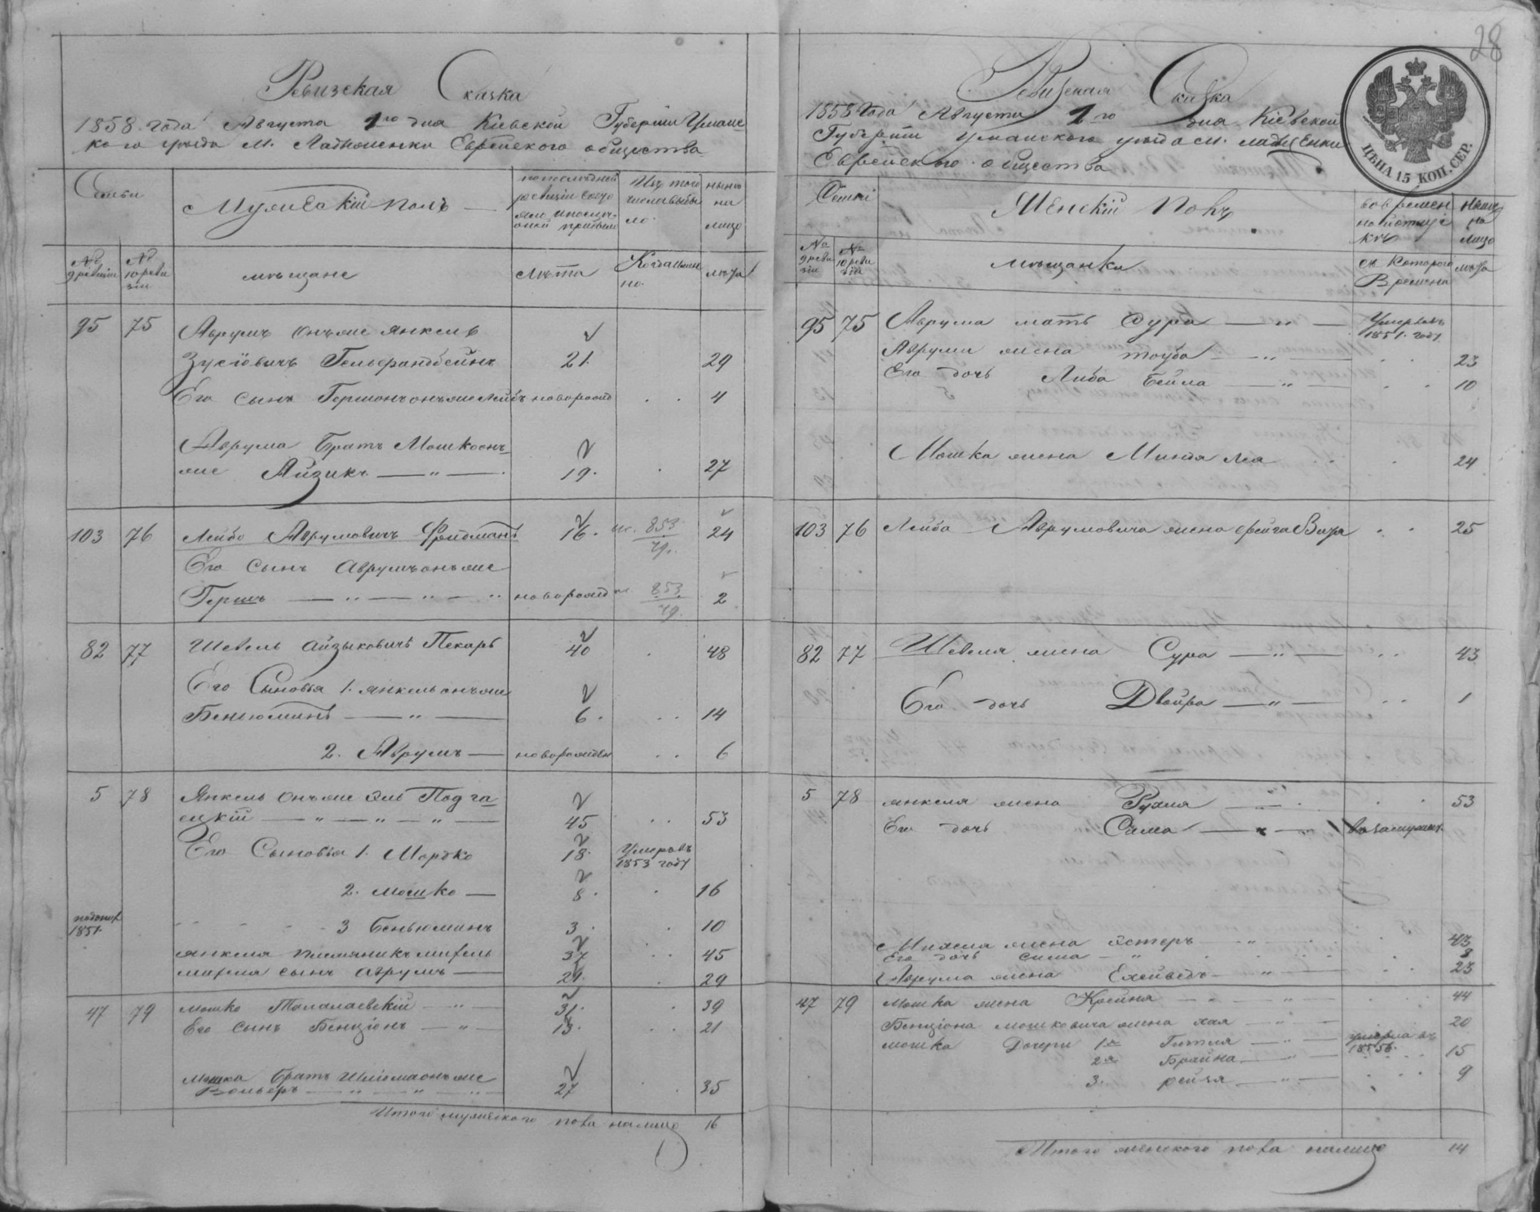 Ревизская Сказка
1858 года Августа 1го дня Киевской Губернии Уманс-
кого уезда м. Ладыженки Еврейского общества
Семьи
Мужескій полъ
Изъ того числа выбы
ло
ныне
на
лицо
№
9 ревизіи
№
10 реви
зіи
мещане
лета
Когда именно
лета
95 75 Аврумъ онъ же Янкель
Зусіевичъ Гельфантбейнъ 21. 29
Его сынъ Гершон онъ же Лейбъ новорожд . . 4
Аврума братъ Мошко онъ
же Айзикъ — „ — 19. . 27
103 76 Лейбо Аврумовичъ Фридманъ 16. 853 24
Его сынъ Аврумъ онъ же
Гершъ — „ — „ — „ новорожд 853 2
82 77 Шевель Айзыковичъ Пекарь 40 . 48
Его Сыновья 1. Янкель онъ же
Беньюминъ — „ — 6. . . 14
2. Аврумъ — новорожден . . 6
5 78 Янкель онъ же
скій — „ — „ — „ — 45 . . 53
Его Сыновья 1. Мордко 18. Умеръ въ
1853 году
2. Мошко — 8. . 16
1851 3 Беньюминъ 3. . . 10
Янкеля племянникъ 37 . . 45
сынъ Аврумъ — 29
47 79 Мошко Талалаевскій — „ — 31. . . 39
Его сынъ Бенціонъ — „ — 13. . . 21
Мошка братъ Шлёма онъ же
Вольфъ — „ — „ — „ 27 . . 35
Итого мужеского пола налицо 16
28
Ревизская Сказка
1858 года Августа 1го дня Кіевской
Губерніи Уманского уезда м. Ладыженки
Еврейского общества
ЦѢНА 15 КОП. СЕР.
Семьи
Женскій Полъ
во времен
ной отлуч
кѣ
ныне
на
лицо
№
9 реви
зіи
№
10 реви
зіи
мещанки
съ Которого
Времени
лета
95 75 Аврума мать Сура — „ — Умерла въ
1851. году
Аврума жена Тоуба — „ — . . 23
Его дочь Либа Бейла — „ — . . 10
Мошка жена Минтя Лея . . 24
103 76 Лейба Аврумовича жена Фейга . . 25
82 77 Шевеля жена Сура — „ — . . 43
Его дочь Двойра — „ — . . 1
5 78 Янкеля жена Рухля — „ . . . 53
Его дочь Сима — „ — взамужес.
жена Эстеръ — „ 43
Его дочь Сима — „ . . . 8
Аврума жена — „ — . . 23
47 79 Мошка жена Крейна — „ — „ — . . 44
Бенціона Мошковича жена Хая — „ — . . 20
Мошка Дочери 1я Гитля — „ — умерла въ
2я Брайна — „ — . . 15
3. Рейзя — „ — . . 9
Итого женского пола налицо 14